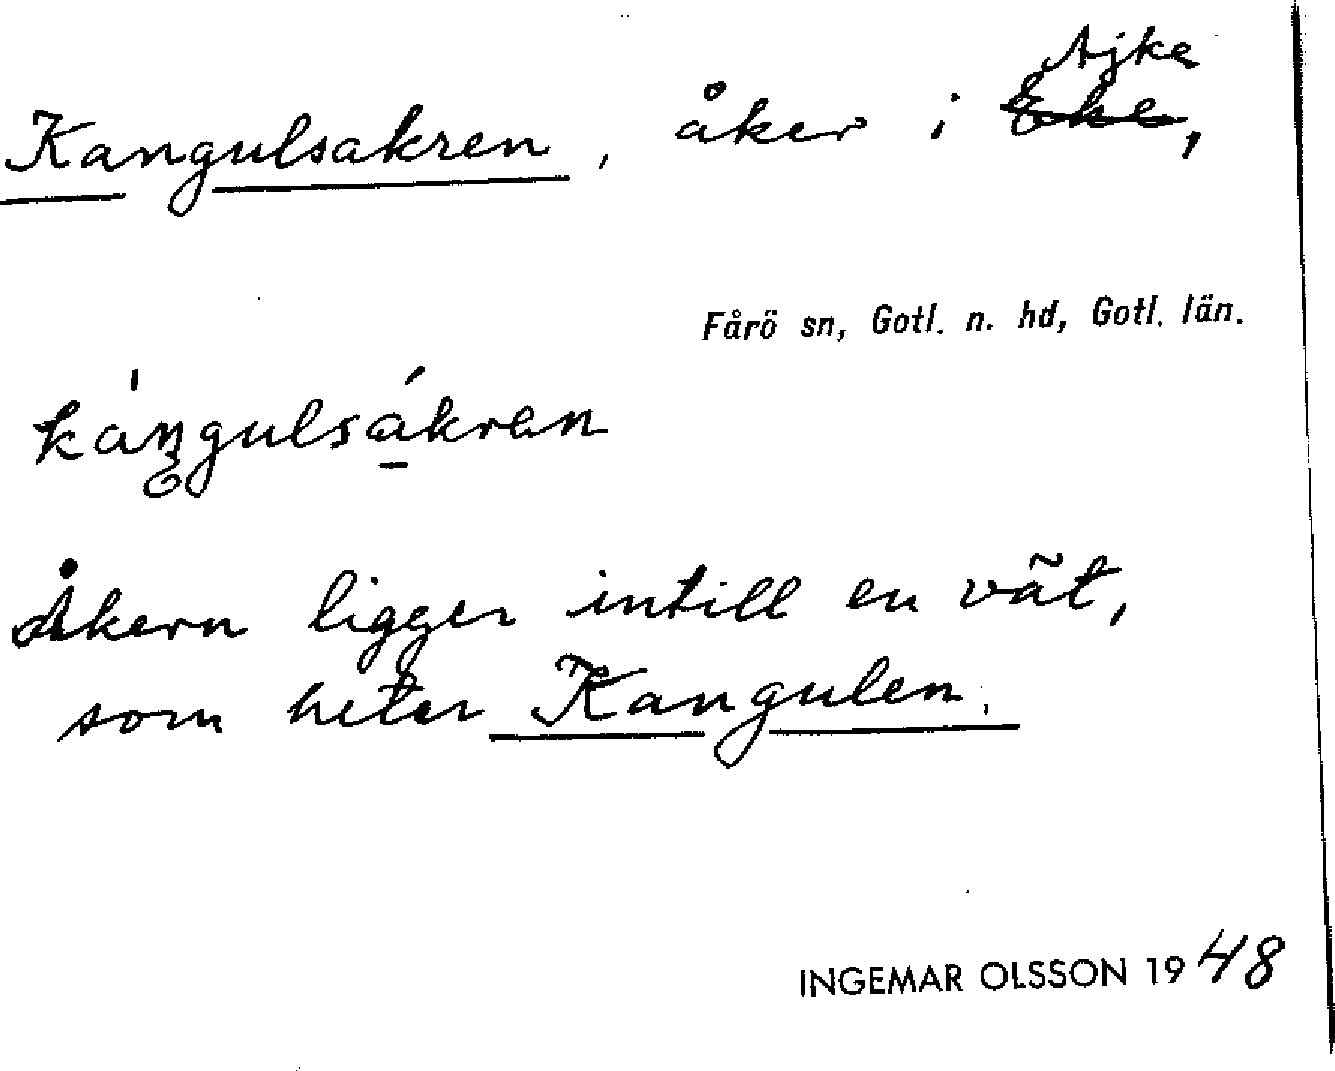 Kangulsakren, åker i Ajke,
Fårö sn, Gotl. n. hd, Gotl. län.
káŋgulsákran
Åkern ligger intill en vät,
som heter Kangulen.
INGEMAR OLSSON 1948